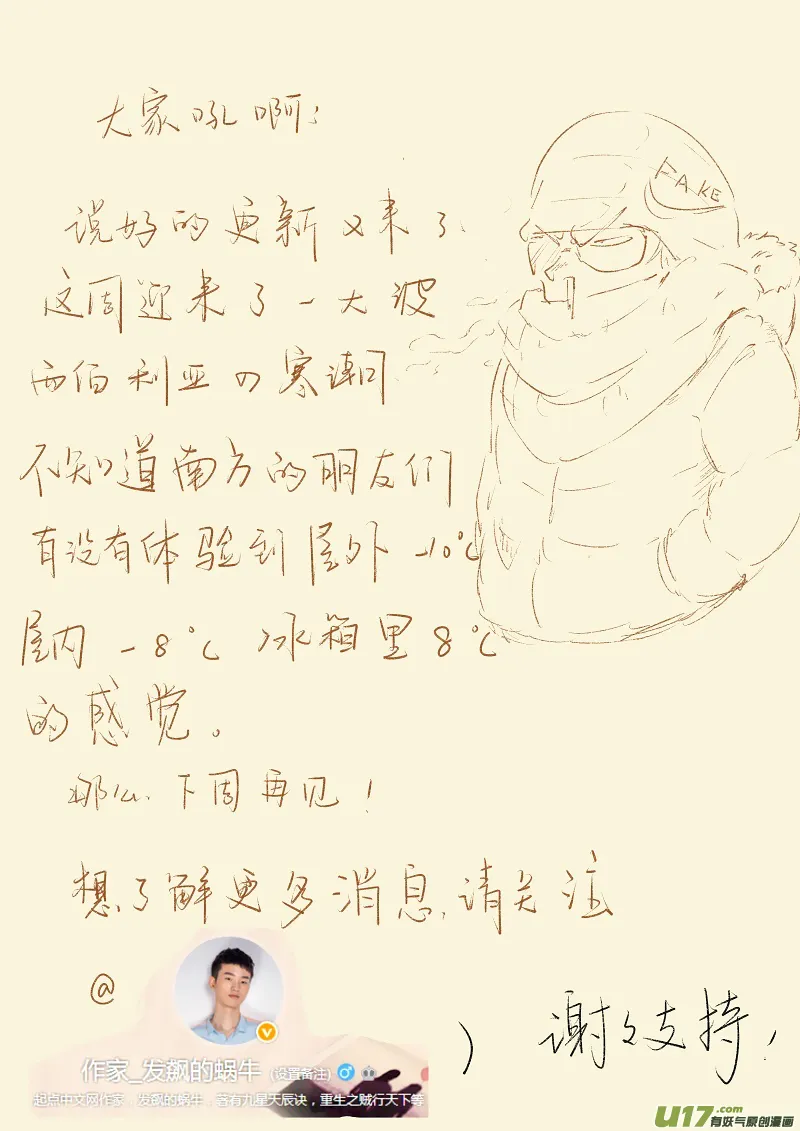 大家吼啊:
FAKE
说好的更新又来了.
这周迎来了一大波
西伯利亚の寒潮
不知道南方的朋友们
有没有体验到屋外-10℃
屋内-8℃ 冰箱里8℃
的感觉。
那么.下周再见!
想了解更多消息,请关注
@
作家_发飙的蜗牛 (设置备注)
起点中文网作家,发飙的蜗牛,著有九星天辰诀,重生之贼行天下等
谢々支持!
U17.com
有妖气原创漫画